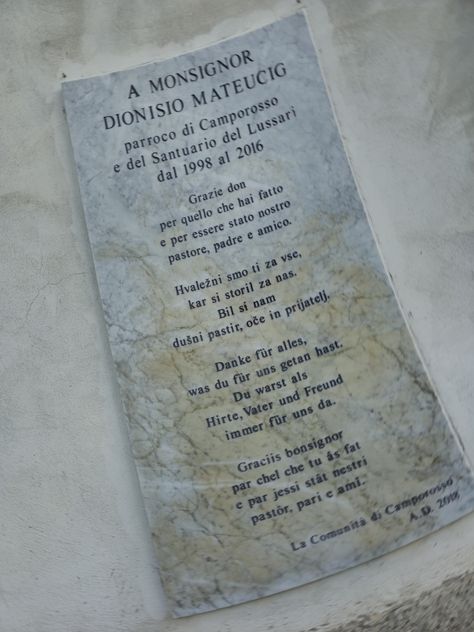 A MONSIGNOR
DIONISIO MATEUCIG
parroco di Camporosso
e del Santuario del Lussari
dal 1998 al 2016
Grazie don
per quello che hai fatto
e per essere stato nostro
pastore, padre e amico.
Hvaležni smo ti za vse,
kar si storil za nas.
Bil si nam
dušni pastir, oče in prijatelj.
Danke für alles,
was du für uns getan hast.
Du warst als
Hirte, Vater und Freund
immer für uns da.
Graciis bonsignor
par chel che tu âs fat
e par jessi stât nestri
pastôr, pari e amì.
La Comunità di Camporosso
A.D.